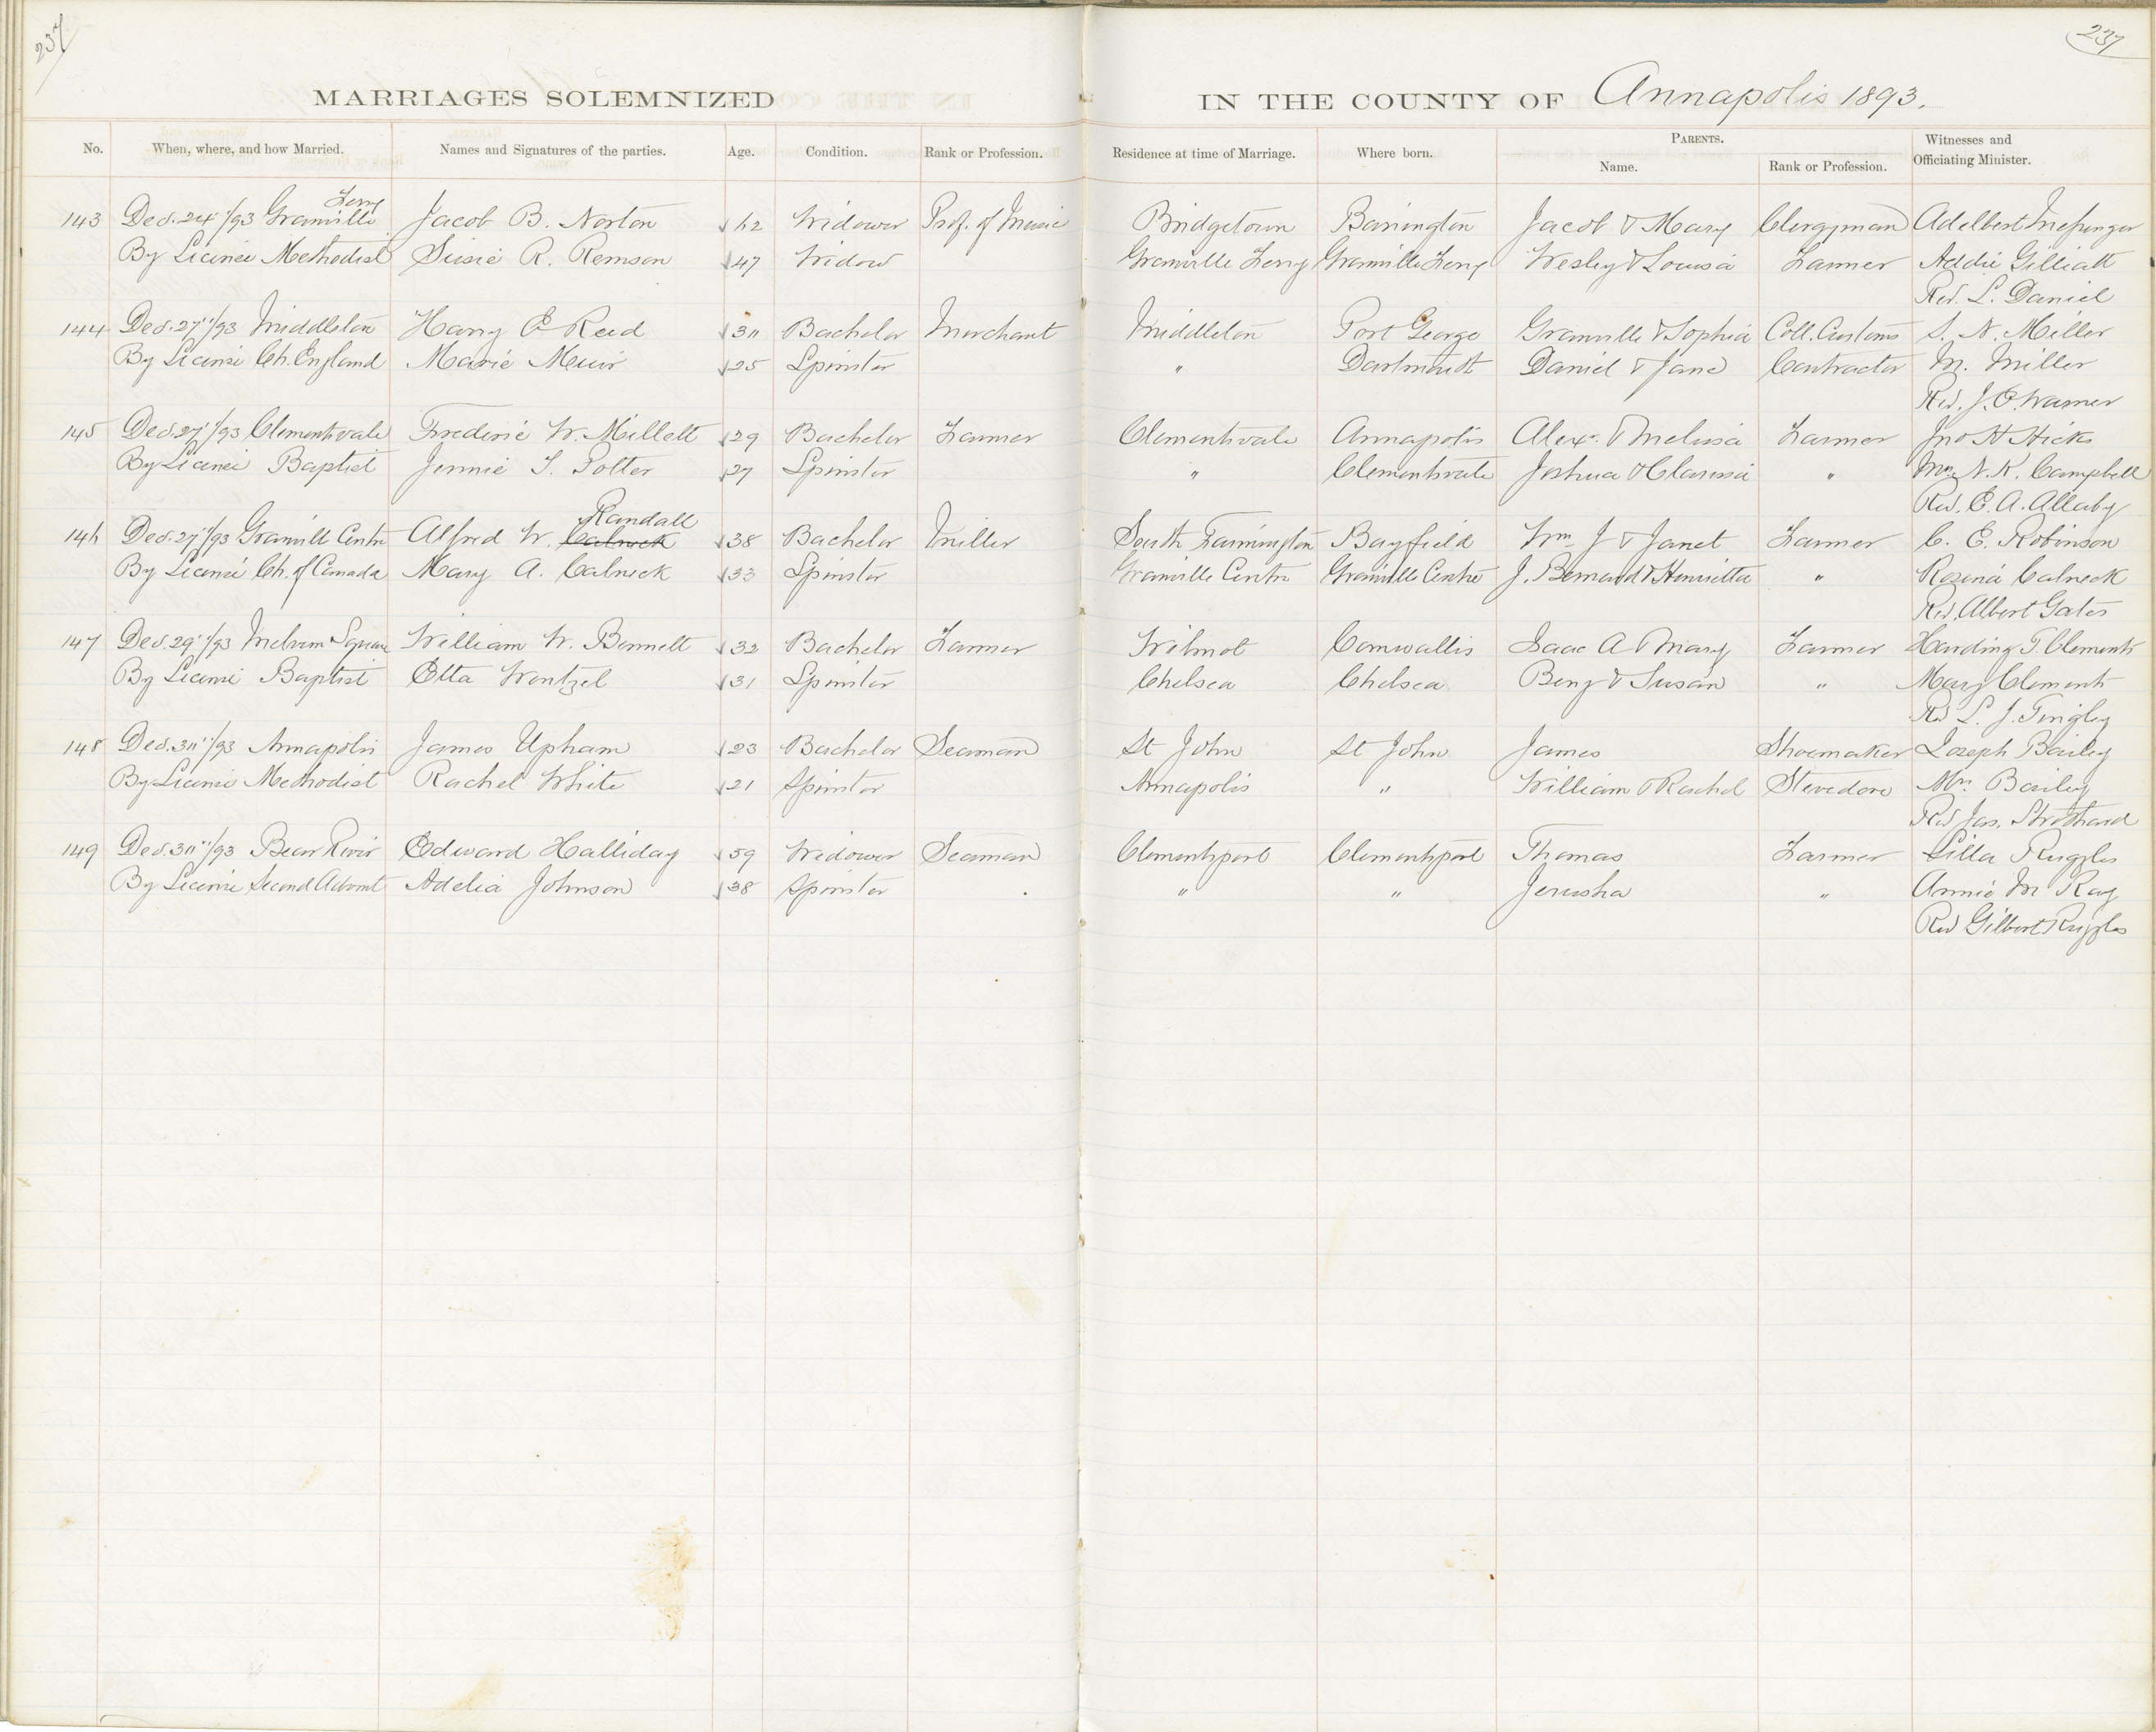 237
237
MARRIAGES SOLEMNIZED IN THE COUNTY OF Annapolis 1893.
No. When, where, and how Married. Names and Signatures of the parties. Age. Condition. Rank or Profession. Residence at time of Marriage. Where born. PARENTS. Name. Rank or Profession. Witnesses and Officiating Minister.
Ferry
143 Dec. 24"/93 Granville Jacob B. Norton 62 Widower Prof. of Music Bridgetown Barrington Jacob & Mary Clergyman Adelbert Messenger
By License Methodist Susie R. Remson 47 Widow Granville Ferry Granville Ferry Wesley & Louisa Farmer Addie Gilliatt
Rev. L. Daniel
144 Dec. 27"/93 Middleton Harry E Reed 30 Bachelor Merchant Middleton Port George Granville & Sophia Coll. Customs S. N. Miller
By License Ch. England Marie Muir 25 Spinster " Dartmouth Daniel & Jane Contractor M. Miller
Rev. J. E. Warner
145 Dec. 27"/93 Clementsvale Frederic W. Millett 29 Bachelor Farmer Clementsvale Annapolis Alexr. & Melissa Farmer Jno H Hicks
By License Baptist Jennie T. Potter 27 Spinster " Clementsvale Joshua & Clarissa " Mrs N. K. Campbell
Rev. E. A. Allaby
Randall
146 Dec. 27"/93 Granvill Centre Alfred W. Calneck 38 Bachelor Miller South Farmington Bayfield Wm J & Janet Farmer C. E. Robinson
By License Ch. of Canada Mary A. Calneck 33 Spinster Granville Centre Granville Centre J. Bernard & Henrietta " Rozina Calneck
Rev. Albert Gates
147 Dec. 29"/93 Melvern Square William W. Bennett 32 Bachelor Farmer Wilmot Cornwallis Isaac A & Mary Farmer Harding T. Clements
By License Baptist Etta Wentzel 31 Spinster Chelsea Chelsea Benj & Susan " Mary Clements
Rev L. J. Tingley
148 Dec. 30"/93 Annapolis James Upham 23 Bachelor Seaman St John St John James Shoemaker Joseph Bailey
By License Methodist Rachel White 21 Spinster Annapolis " William & Rachel Stevedore Mrs. Bailey
Rev Jas. Strothard
149 Dec. 30"/93 Bear River Edward Halliday 59 Widower Seaman Clementsport Clementsport Thomas Farmer Lilla Ruggles
By License Second Advent Adelia Johnson 38 Spinster " " Jerusha " Annie M Ray
Rev Gilbert Ruggles